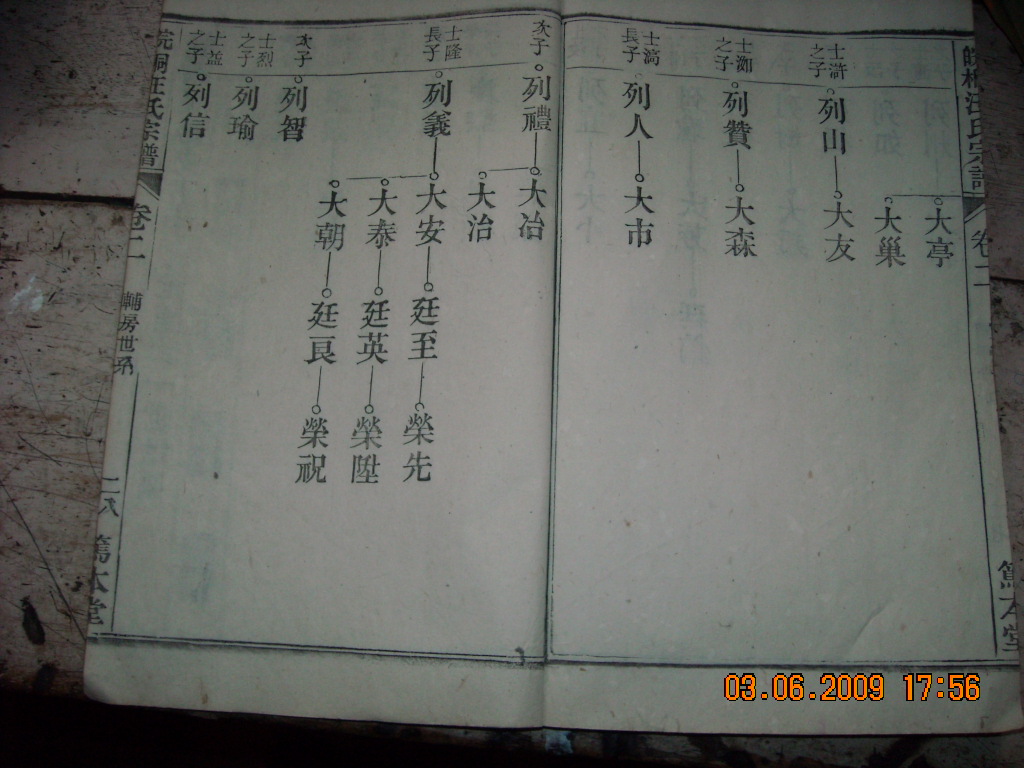 大亭
大巢
士滸之子 列山 大友
士洳之子 列贊 大森
士漪長子 列人 大市
次子 列禮 大冶
大治
士隆長子 列義 大安 廷至 榮先
大泰 廷英 榮陞
大朝 廷良 榮祝
次子 列智
士烈之子 列瑜
士益之子 列信
皖桐汪氏宗譜 卷二 輔房世系 二八 篤本堂
汪氏宗譜 卷二 篤本堂
03.06.2009 17:56